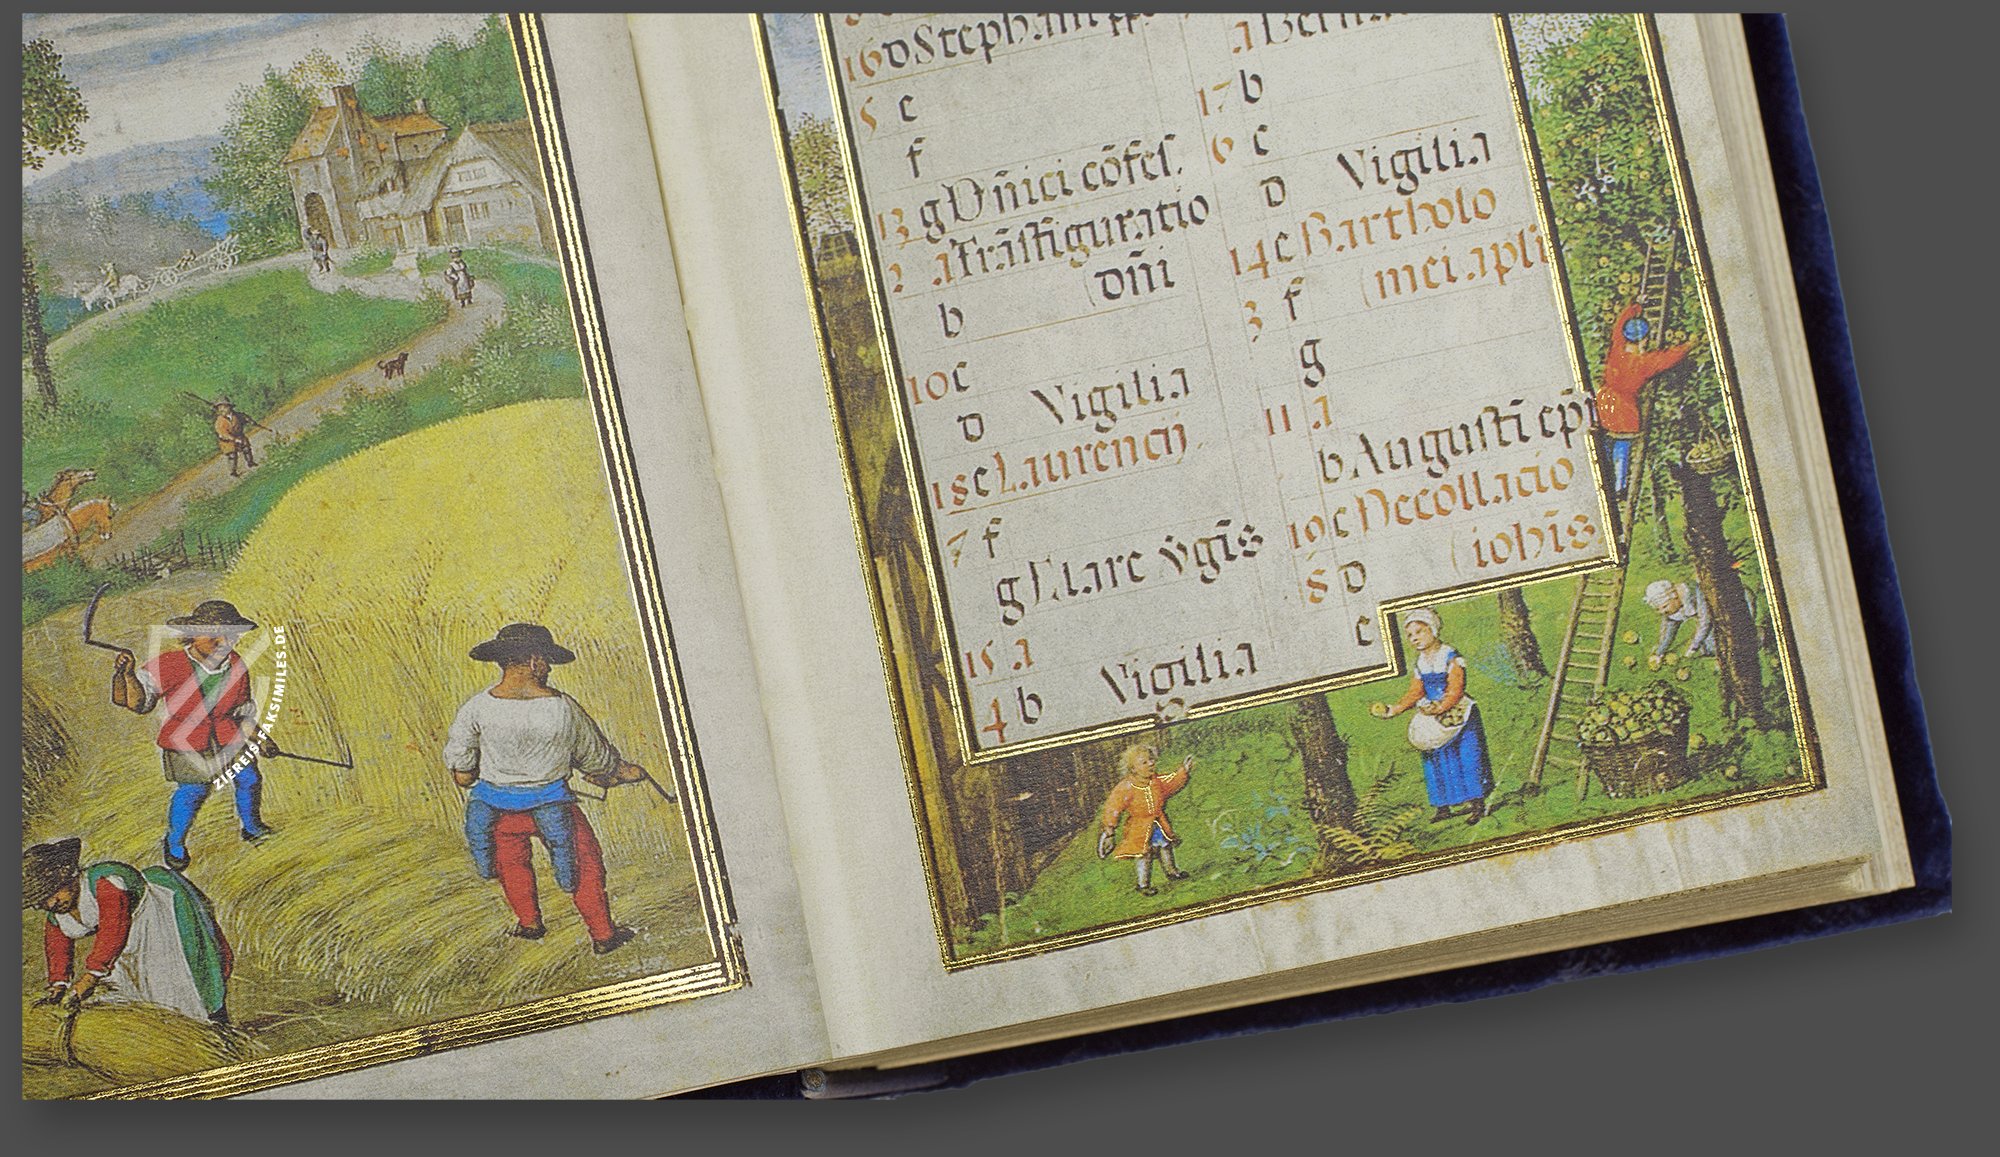 16 d Stephani pp
5 e
f
13 g Dñici cõfes.
2 a Trãsfiguratio
(dñi
b
10 c
d Vigilia
18 e Laurencij.
7 f
g Clare v̾gĩs
15 a
4 b Vigilia
a Bernar
17 b
6 c
d Vigilia
14 e Bartholo
3 f (mei apli
g
11 a
b Augustĩ epi
19 c Decollacio
8 d (iohĩs
e
ZIEREIS-FAKSIMILES.DE